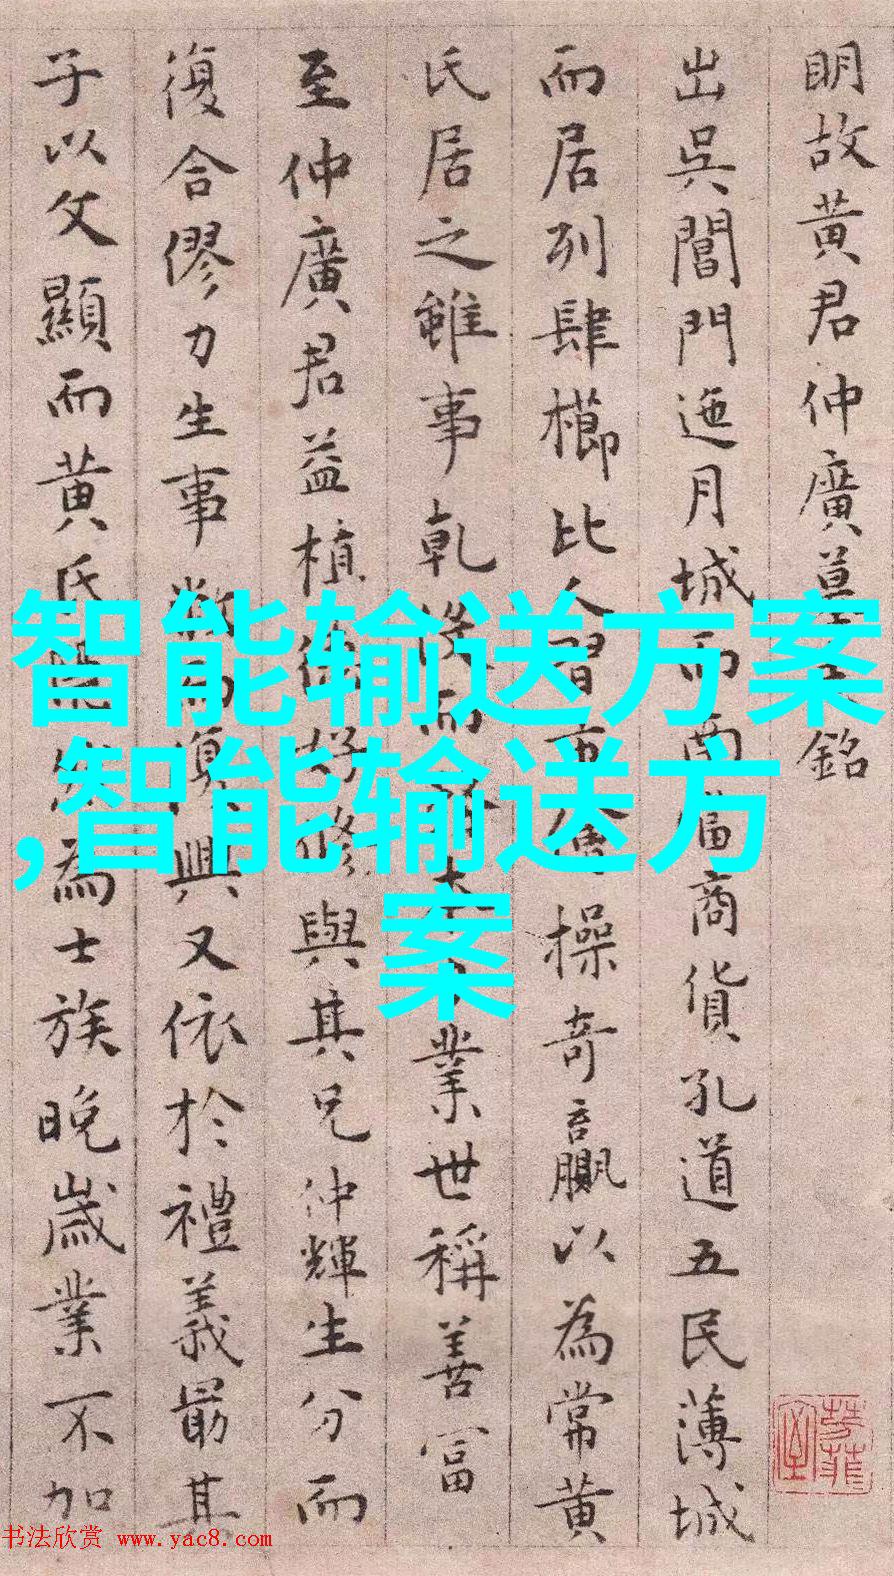 明故黄君仲廣墓
銘
出吳閶門迤月城而南
商貨孔道五民薄城
而居列肆櫛比人習
操奇贏以為常黄
氏居之雖事乾没而
業世稱善冨
至仲廣君益植德好修與其兄仲輝生分而
復合僇力生事
復興又依於禮義最其
子以文顯而黄氏
為士族晚歲業不加
智能输送方案
,智能输送方
案
书法欣赏 www.yac8.com